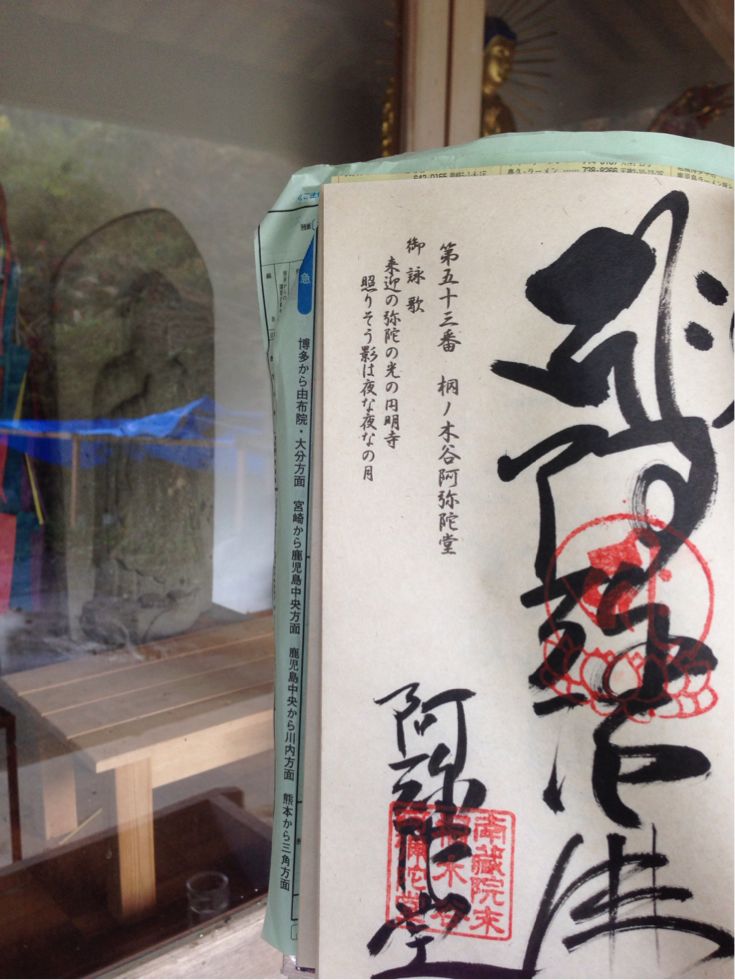 第五十三番　柄ノ木谷阿弥陀堂
御詠歌
来迎の弥陀の光の円明寺
照りそう影は夜な夜なの月
阿弥陀佛
阿弥陀堂
南蔵院末
急
博多から由布院・大分方面　宮崎から鹿児島中央方面　鹿児島中央から川内方面　熊本から三角方面